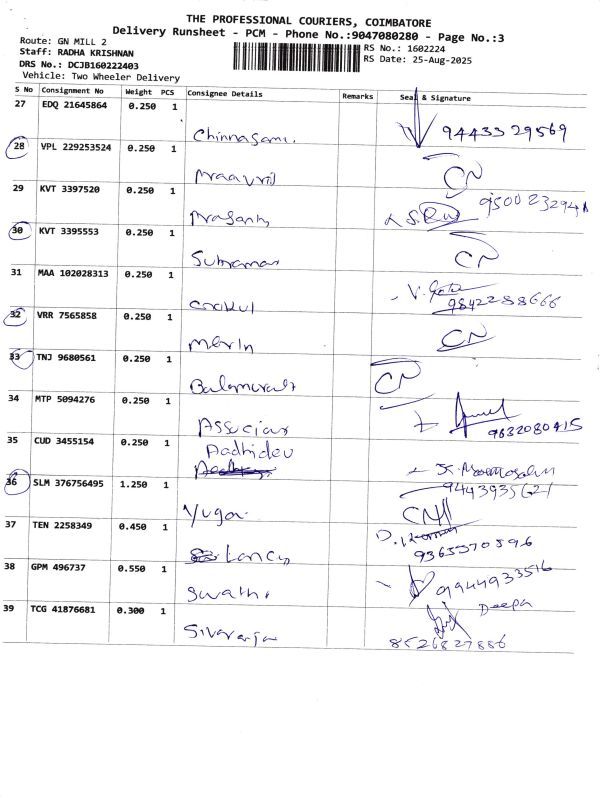 THE PROFESSIONAL COURIERS, COIMBATORE
Delivery Runsheet - PCM - Phone No.:9047080280 - Page No.:3
Route: GN MILL 2
RS No.: 1602224
Staff: RADHA KRISHNAN
RS Date: 25-Aug-2025
DRS No.: DCJB160222403
Vehicle: Two Wheeler Delivery
S No Consignment No Weight PCS Consignee Details Remarks Seal & Signature
27 EDQ 21645864 0.250 1
Chinnasami 9443329569
28 VPL 229253524 0.250 1
CN
29 KVT 3397520 0.250 1
Prasanth
30 KVT 3395553 0.250 1
CN
31 MAA 102028313 0.250 1
Gokul 9842288666
32 VRR 7565858 0.250 1
Merin CN
33 TNJ 9680561 0.250 1
Balamurali CN
34 MTP 5094276 0.250 1
9632080415
35 CUD 3455154 0.250 1
Aadhidev
9443935621
36 SLM 376756495 1.250 1
CN
37 TEN 2258349 0.450 1
9365370596
38 GPM 496737 0.550 1
Swathi 9944933516
39 TCG 41876681 0.300 1
Deepa
8526827886